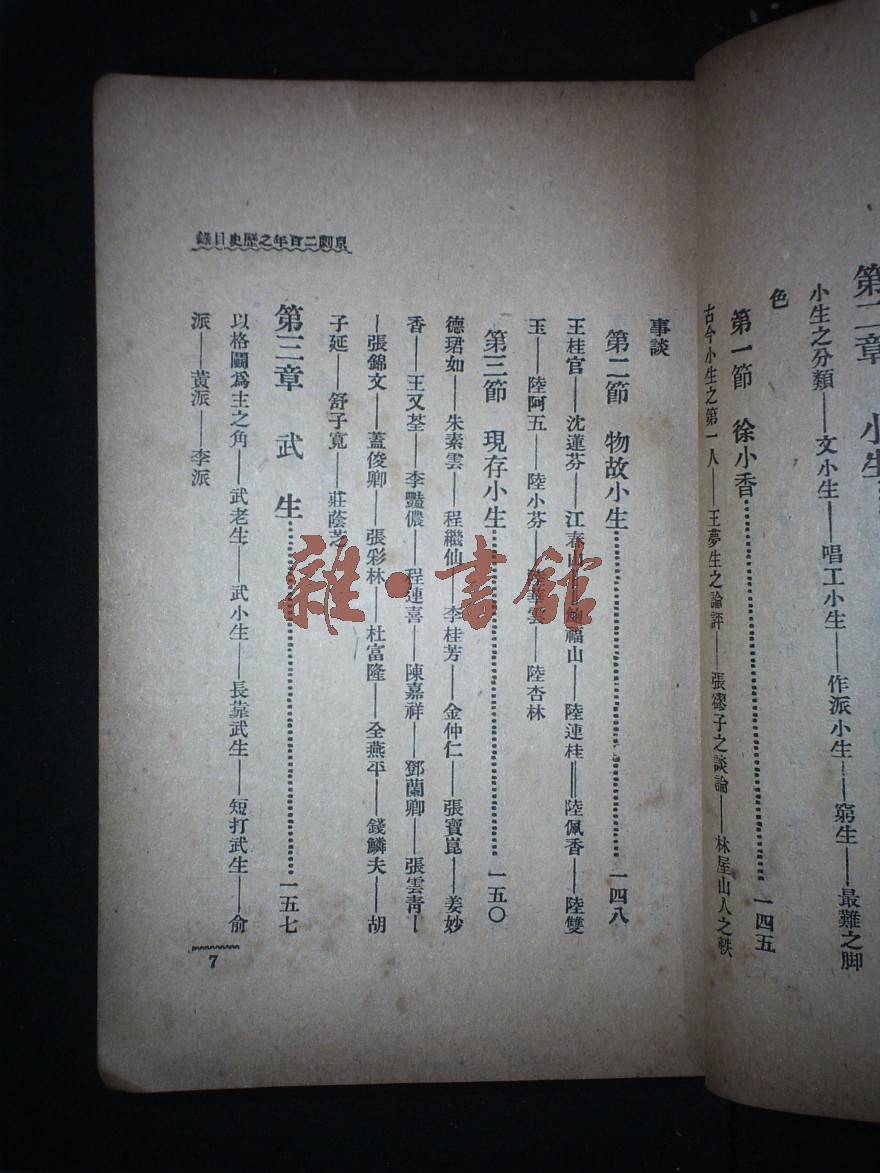 第二章 小生
小生之分類——文小生——唱工小生——作派小生——窮生——最難之脚
色
第一節 徐小香……一四五
古今小生之第一人——王夢生之論評——張繆子之談論——林屋山人之軼
京劇二百年之歷史目錄
事談
第二節 物故小生……一四八
王桂官——沈蓮芬——江春山——鮑福山——陸連桂——陸佩香——陸雙
玉——陸阿五——陸小芬——陸華雲——陸杏林
第三節 現存小生……一五〇
德珺如——朱素雲——程繼仙——李桂芳——金仲仁——張寶崑——姜妙
香——王又荃——李豔儂——程連喜——陳嘉祥——鄧蘭卿——張雲靑—
—張錦文——蓋俊卿——張彩林——杜富隆——全燕平——錢鱗夫——胡
子延——舒子寬——莊蔭芝
第三章 武生……一五七
以格鬭爲主之角——武老生——武小生——長靠武生——短打武生——俞
派——黃派——李派
7
雜·書館